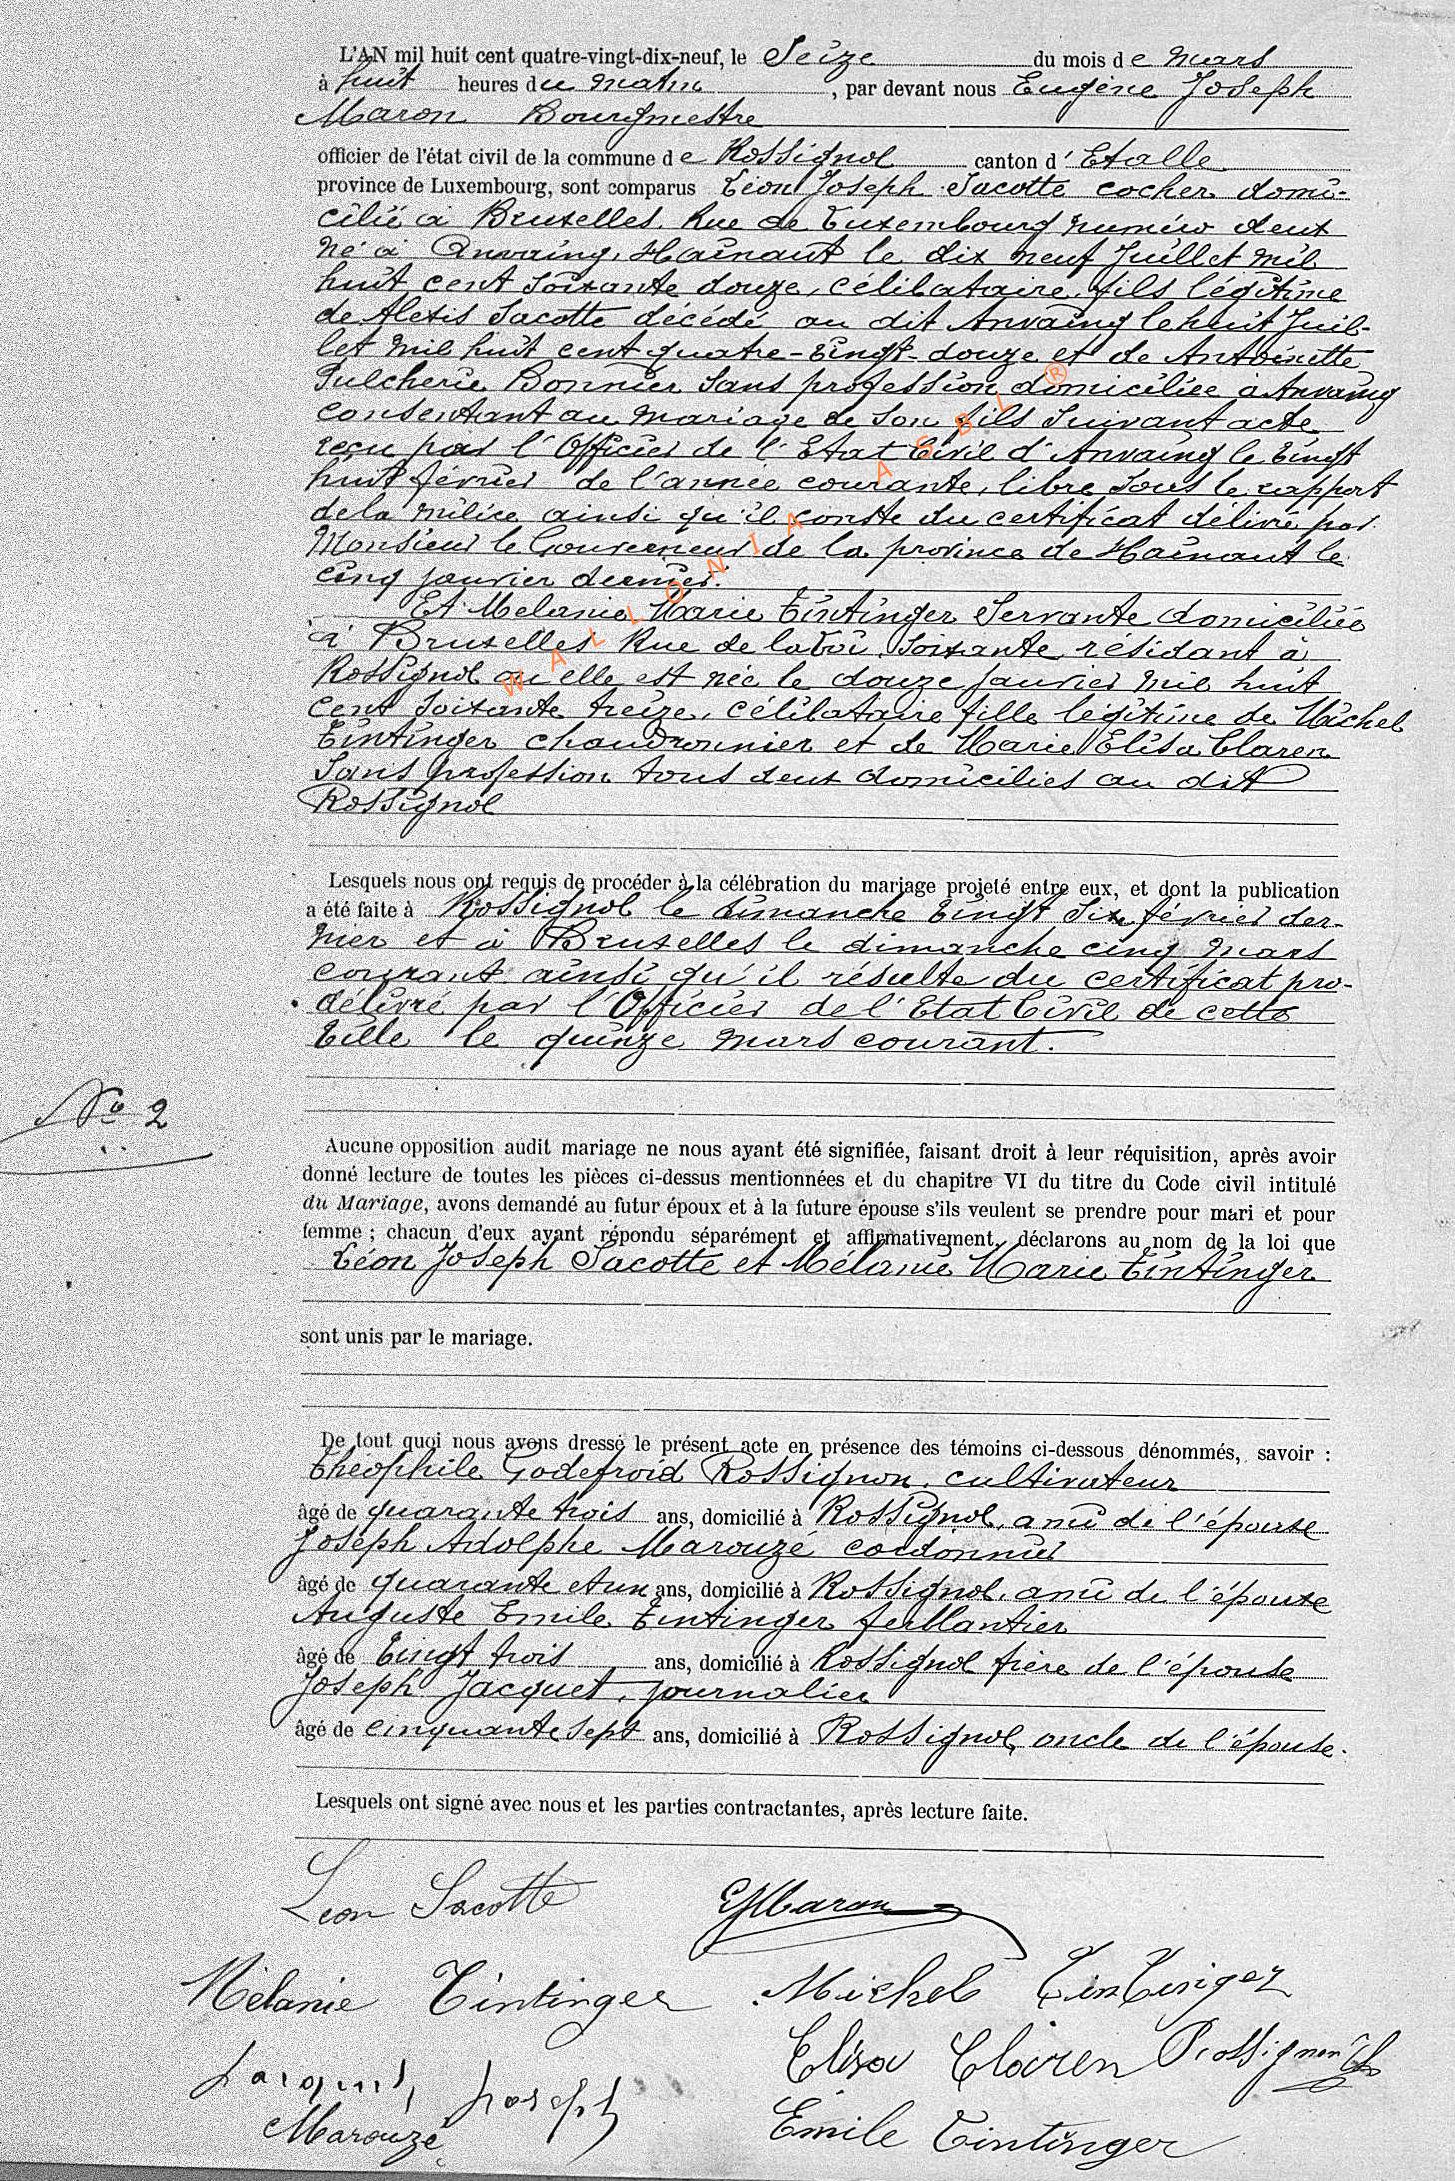 L'AN mil huit cent quatre-vingt-dix-neuf, le Seize du mois de Mars
à huit heures du matin, par devant nous Eugène Joseph
Maron Bourgmestre
officier de l'état civil de la commune de Rossignol canton d'Etalle
province de Luxembourg, sont comparus Léon Joseph Sacotte cocher domi-
cilié à Bruxelles, Rue de Luxembourg numéro deux
né à Anvaing, Hainaut le dix neuf Juillet mil
huit cent soixante douze, célibataire, fils légitime
de Alexis Sacotte décédé au dit Anvaing le huit Juil-
let mil huit cent quatre-vingt-douze et de Antoinette
Pulcherie Bonnier sans profession domiciliée à Anvaing
consentant au mariage de son fils suivant acte
reçu par l'Officier de l'Etat Civil d'Anvaing le vingt
huit février de l'année courante, libre sous le rapport
de la milice ainsi qu'il conste du certificat délivré par
Monsieur le Gouverneur de la province de Hainaut le
cinq janvier dernier.
Et Melanie Marie Tintinger Servante domiciliée
à Bruxelles Rue de la Loi, soixante, résidant à
Rossignol où elle est née le douze janvier mil huit
cent soixante treize, célibataire fille légitime de Michel
Tintinger chaudronnier et de Marie Elisa Claren
sans profession tous deux domiciliés au dit
Rossignol
WALLONIA ASBL ®
Lesquels nous ont requis de procéder à la célébration du mariage projeté entre eux, et dont la publication
a été faite à Rossignol le dimanche vingt six février der-
nier et à Bruxelles le dimanche cinq mars
courant ainsi qu'il résulte du certificat pro-
délivré par l'Officier de l'Etat Civil de cette
ville le quinze mars courant.
No 2
Aucune opposition audit mariage ne nous ayant été signifiée, faisant droit à leur réquisition, après avoir
donné lecture de toutes les pièces ci-dessus mentionnées et du chapitre VI du titre du Code civil intitulé
du Mariage, avons demandé au futur époux et à la future épouse s'ils veulent se prendre pour mari et pour
femme ; chacun d'eux ayant répondu séparément et affirmativement, déclarons au nom de la loi que
Léon Joseph Sacotte et Mélanie Marie Tintinger
sont unis par le mariage.
De tout quoi nous avons dressé le présent acte en présence des témoins ci-dessous dénommés, savoir :
Théophile Godefroid Rossignon, cultivateur
âgé de quarante trois ans, domicilié à Rossignol, ami de l'épouse
Joseph Adolphe Marouzé cordonnier
âgé de quarante et un ans, domicilié à Rossignol, ami de l'épouse
Auguste Emile Tintinger ferblantier
âgé de vingt trois ans, domicilié à Rossignol frère de l'épouse
Joseph Jacquet, journalier
âgé de cinquante sept ans, domicilié à Rossignol, oncle de l'épouse.
Lesquels ont signé avec nous et les parties contractantes, après lecture faite.
Léon Sacotte EJMaron
Mélanie Tintinger Michel Tintinger
Jacquet Joseph Elisa Claren Rossignon Th
Marouzé Emile Tintinger